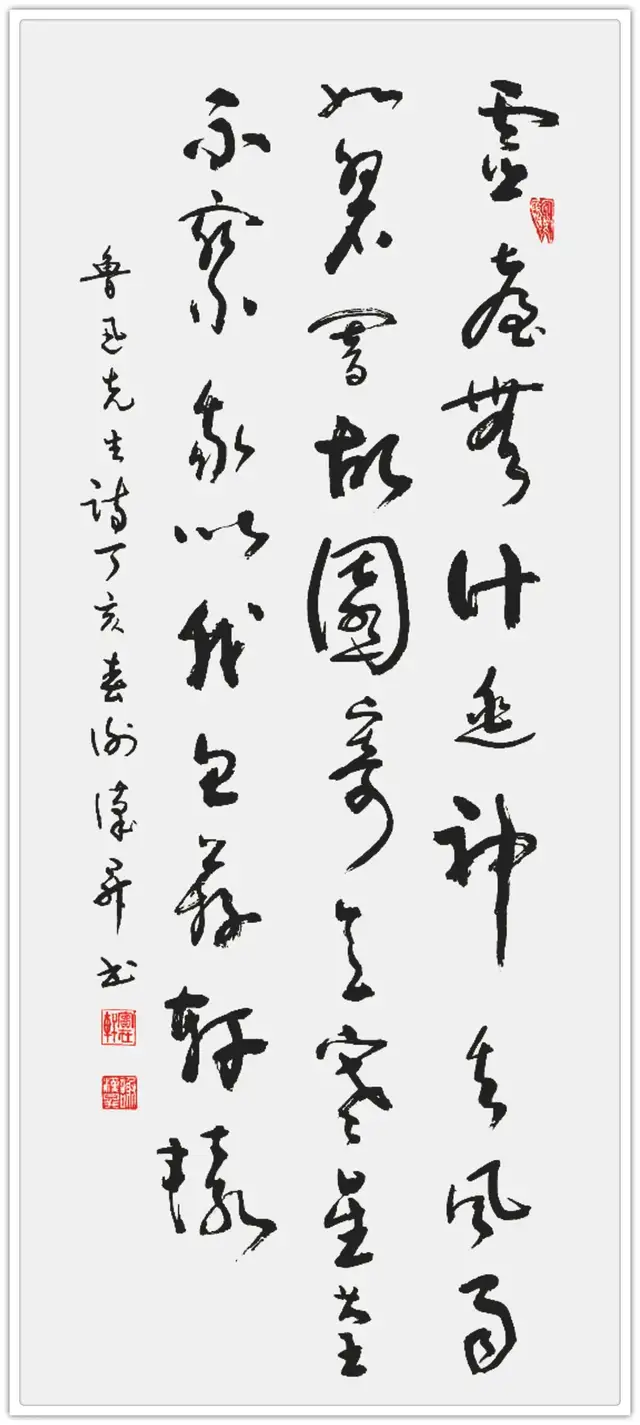 靈臺無計逃神矢風雨
如磐闇故園寄意寒星荃
不察我以我血薦軒轅
魯迅先生詩丁亥春謝漢昇書